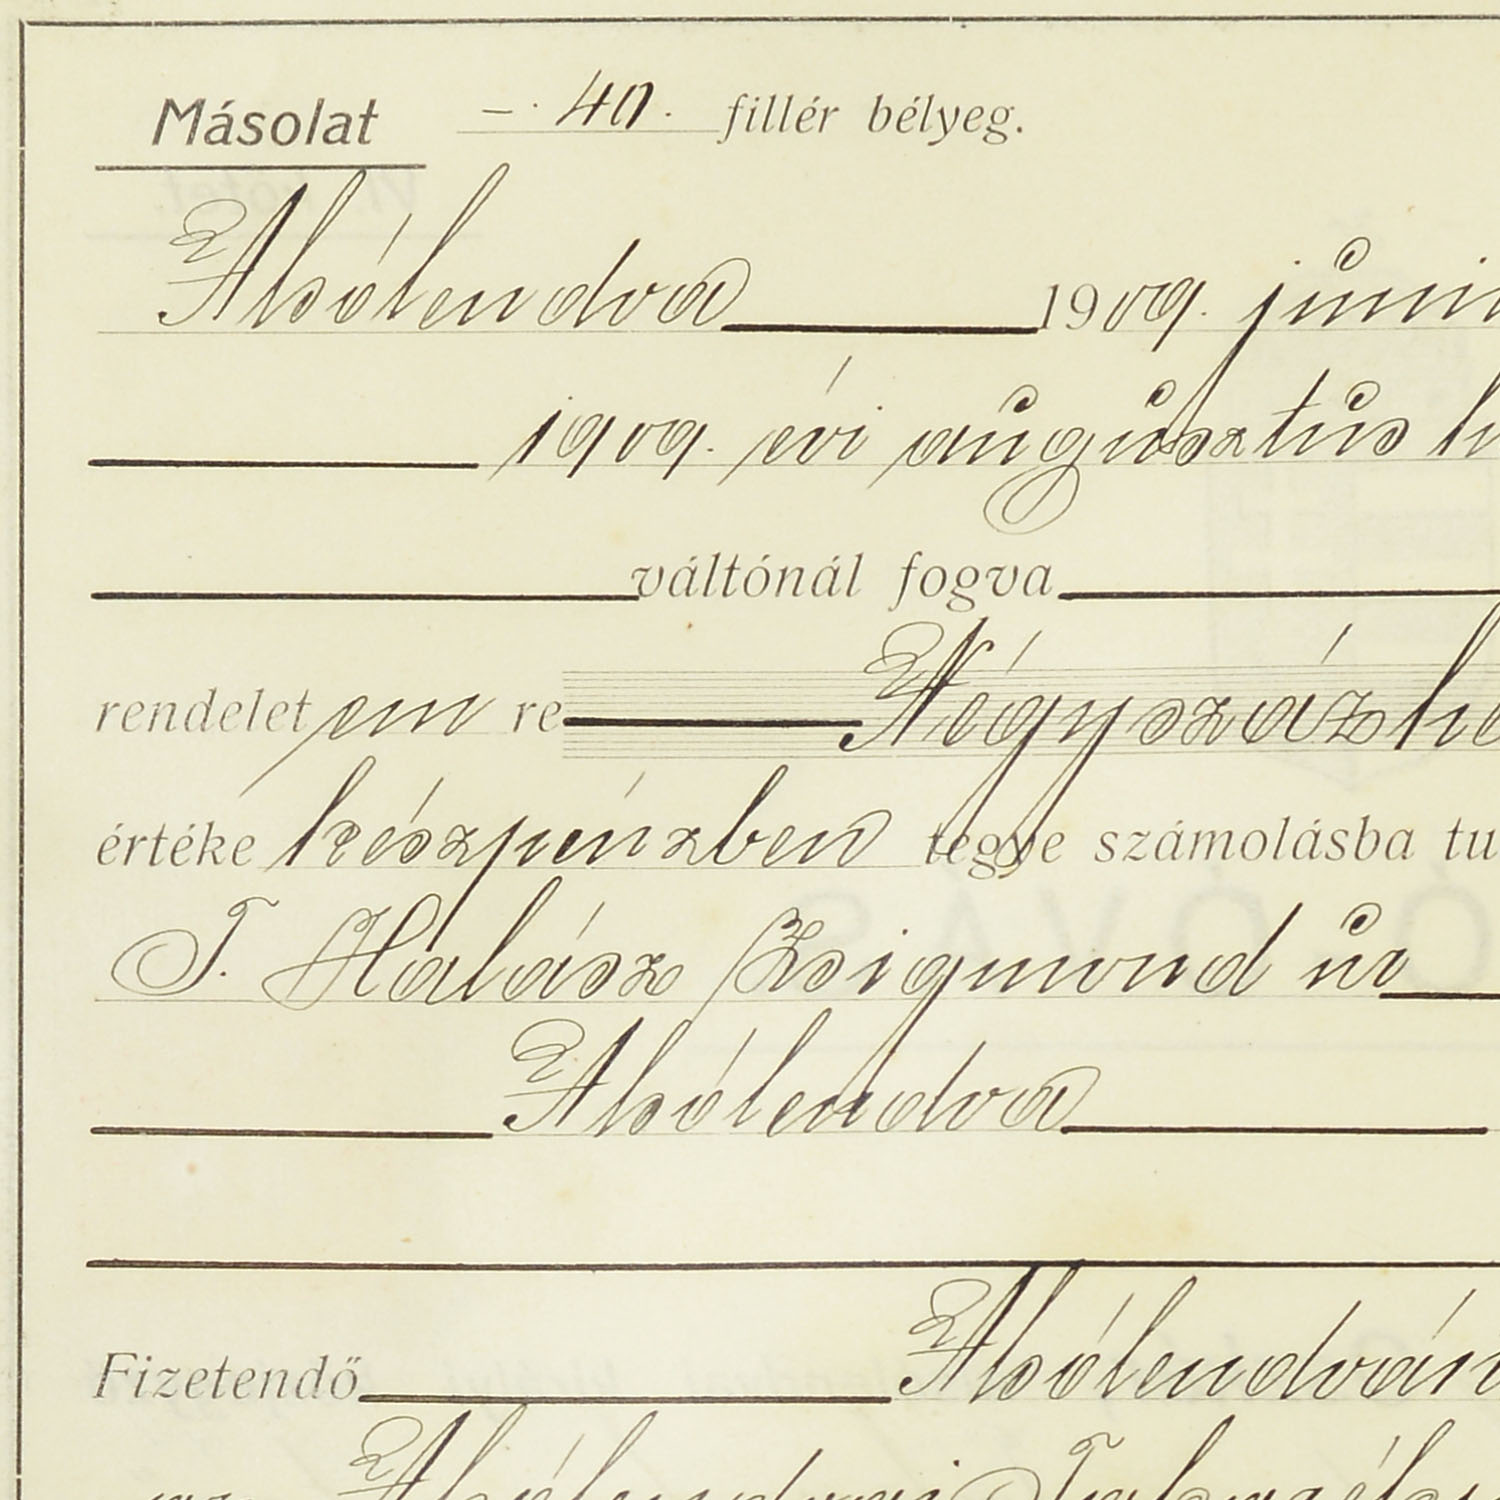 Másolat –. 40. fillér bélyeg.
Alsólendva 1909. júni
1909. évi augusztus h
váltónál fogva
rendelet em re Négyszázh
értéke készpénzben tegye számolásba tu
T. Halász Zsigmond úr
Alsólendva
Fizetendő Alsólendván
Alsólendvai Takarék